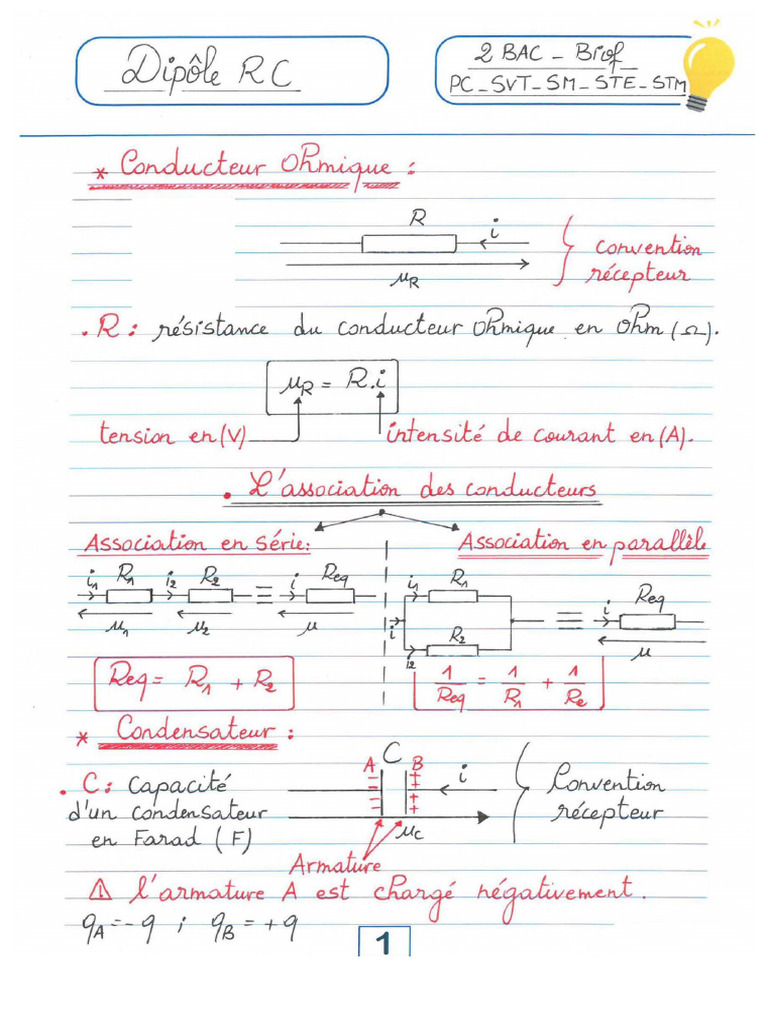 Dipôle RC
2 BAC - Biof
PC_SVT_SM_STE_STM
* Conducteur Ohmique :
R
i
convention
récepteur
u_R
. R : résistance du conducteur Ohmique en Ohm (Ω).
u_R = R.i
tension en (V)
intensité de courant en (A).
. L'association des conducteurs
Association en série:
Association en parallèle
i_1 R_1 i_2 R_2 ≡ i Req
u_1 u_2 u
i_1 R_1
i
i_2 R_2
≡ i Req
u
Req = R_1 + R_2
1/Req = 1/R_1 + 1/R_e
* Condensateur :
A C B
i
. C : Capacité
d'un condensateur
en Farad (F)
Convention
récepteur
u_C
Armature
⚠ l'armature A est chargé négativement.
q_A = -q ; q_B = +q
1